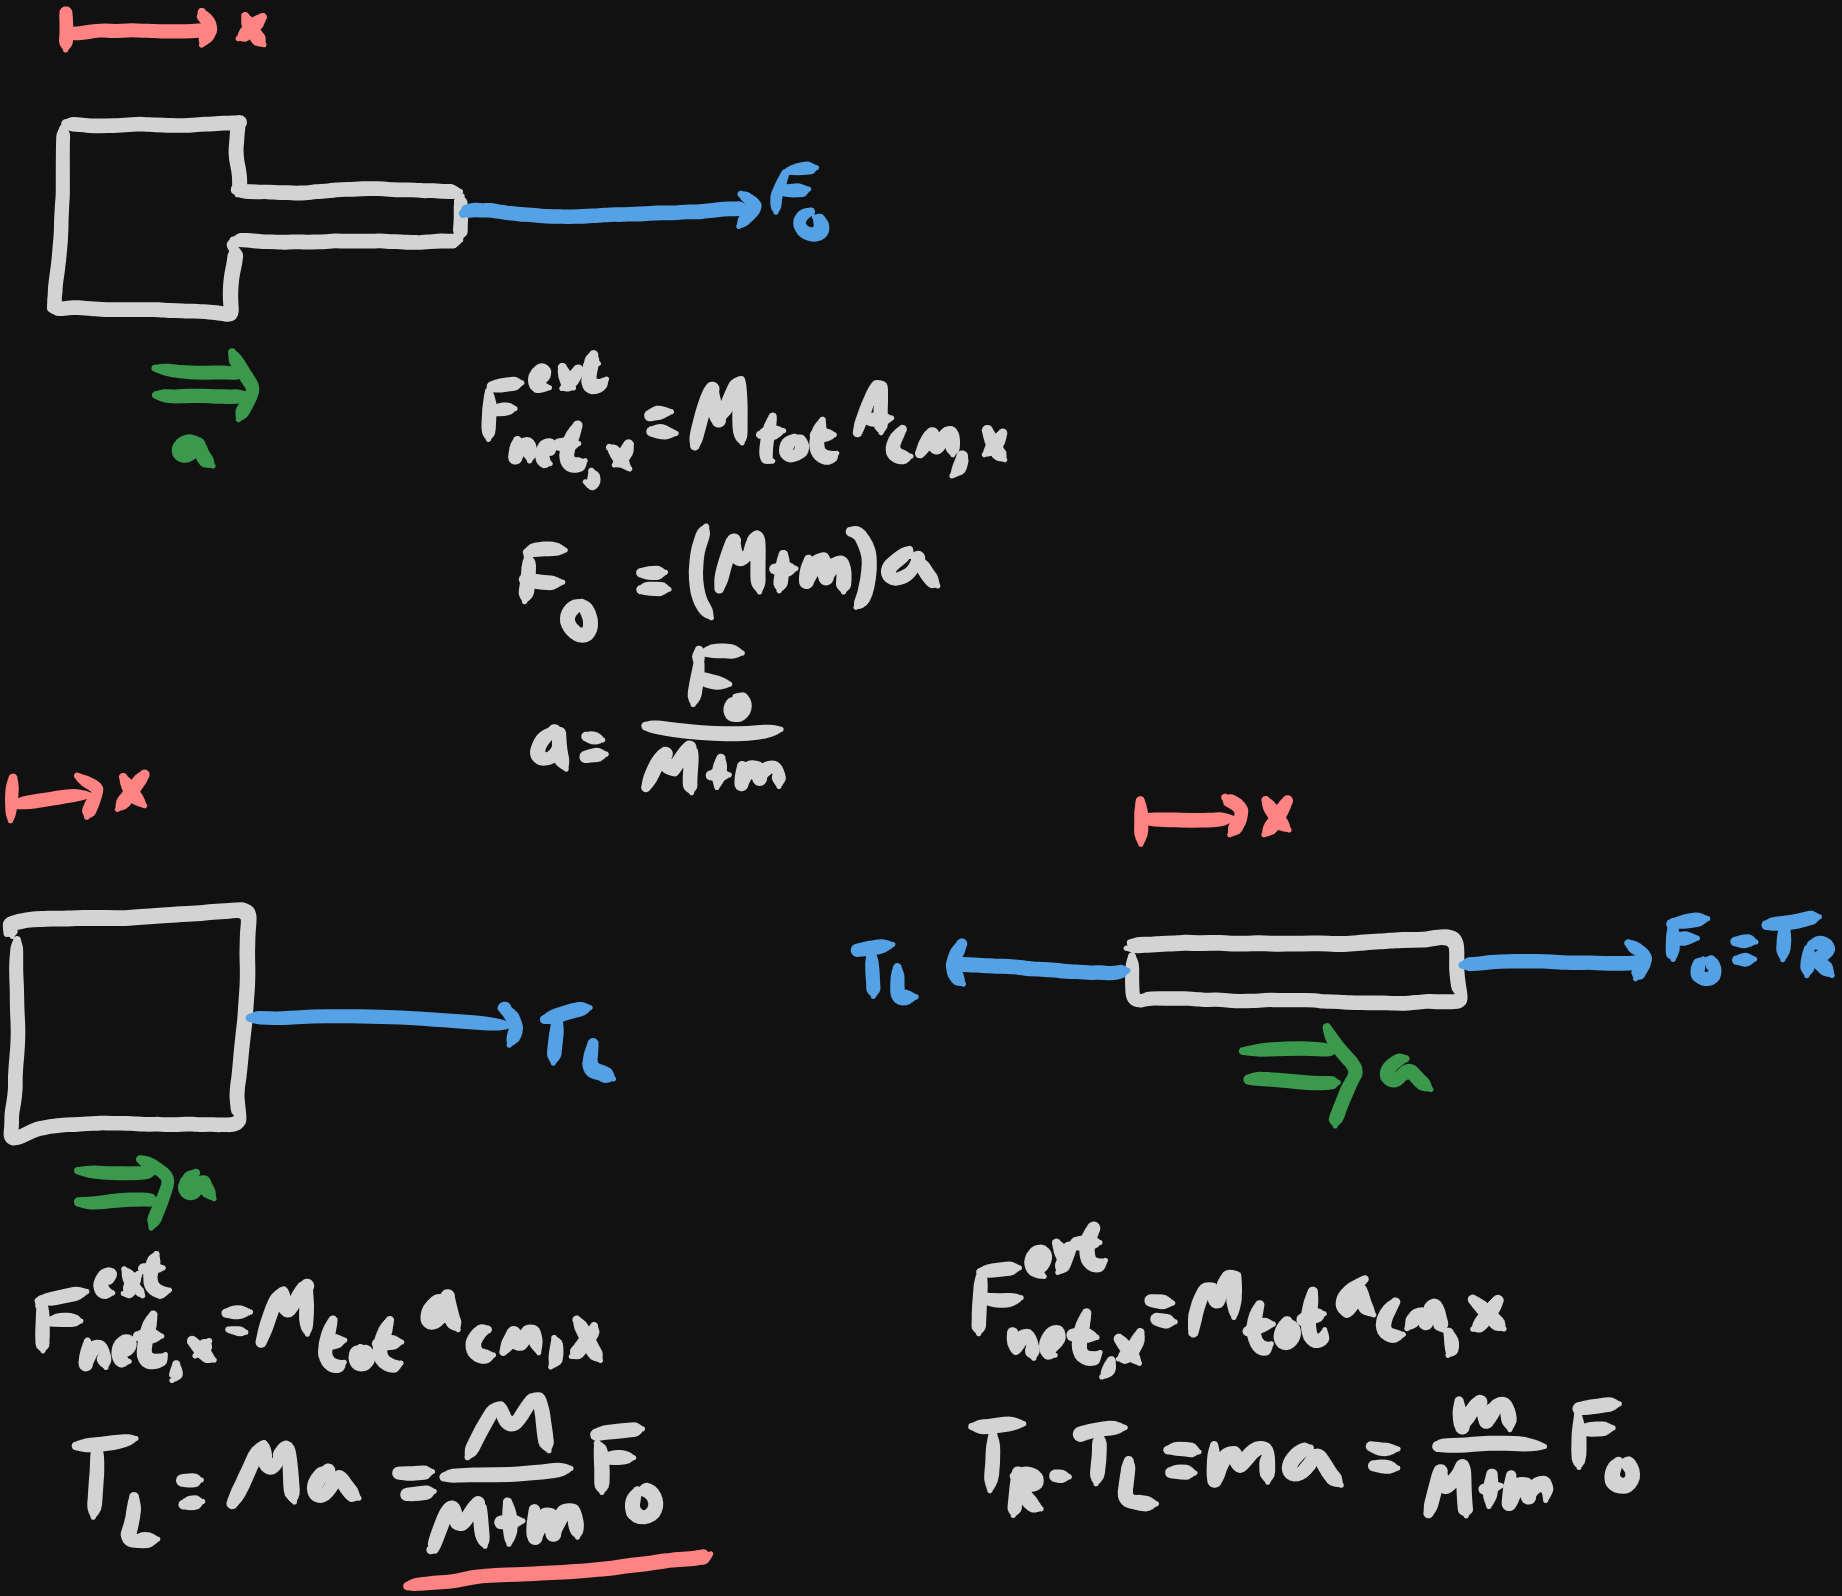 x
F₀
a
F^ext_net,x = M_tot A_cm,x
F₀ = (M+m)a
a = F₀/(M+m)
x
x
T_L
F₀ = T_R
T_L
a
a
F^ext_net,x = M_tot a_cm,x
T_L = Ma = M/(M+m) F₀
F^ext_net,x = M_tot a_cm,x
T_R - T_L = ma = m/(M+m) F₀